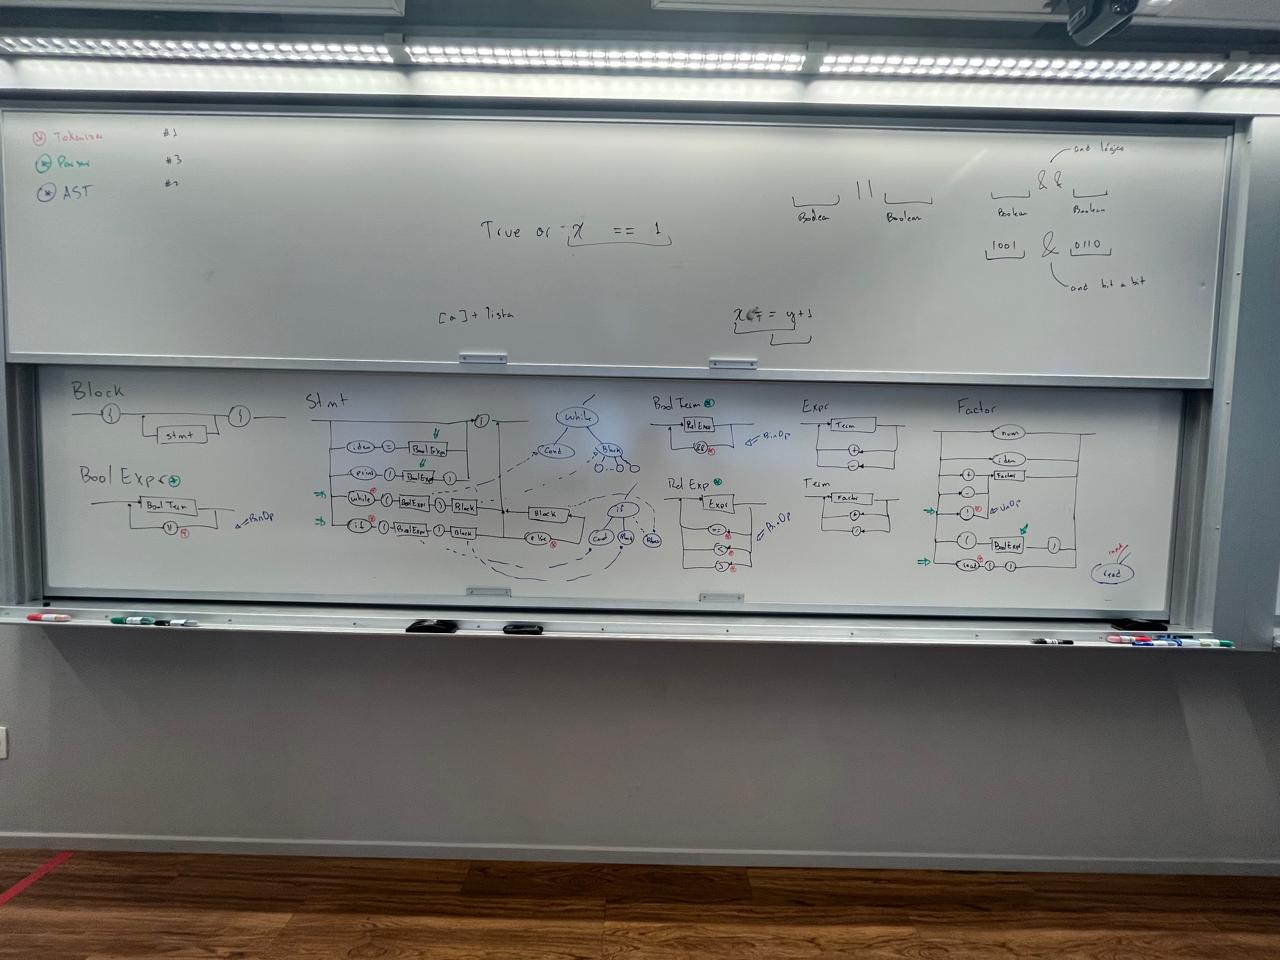 Tokenizer #1
Parser #3
AST
and lógico
||
&&
Boolean Boolean
Boolean Boolean
True or x == 1
1001 & 0110
and bit a bit
[a] + lista
= y+1
Block
{ }
stmt
Bool Expr
Bool Term
||
BinOp
Stmt
;
iden = Bool Expr
print ( Bool Expr )
while ( Bool Expr ) Block
if ( Bool Expr ) Block
Block
else
while
Cond Block
if
Cond Block Block
Bool Term
Rel Expr
&&
BinOp
Rel Exp
Expr
==
<
>
BinOp
Expr
Term
+
-
Term
Factor
*
/
Factor
num
iden
+ Factor
-
!
UnOp
( Bool Expr )
read ( )
read